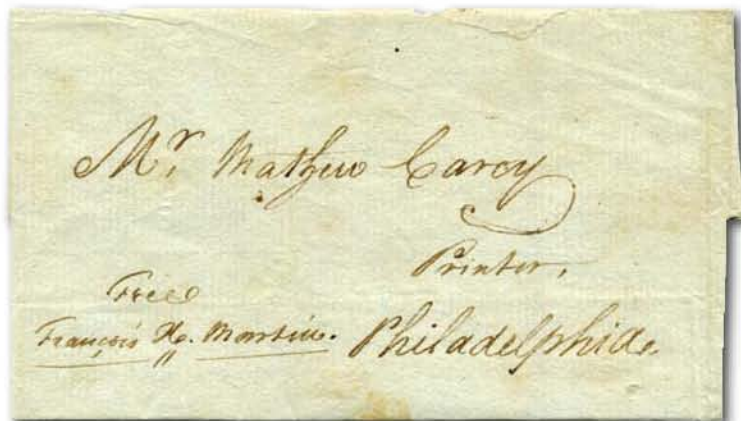 Mr. Mathew Carey
Printer,
Free
François X. Martin.
Philadelphia.